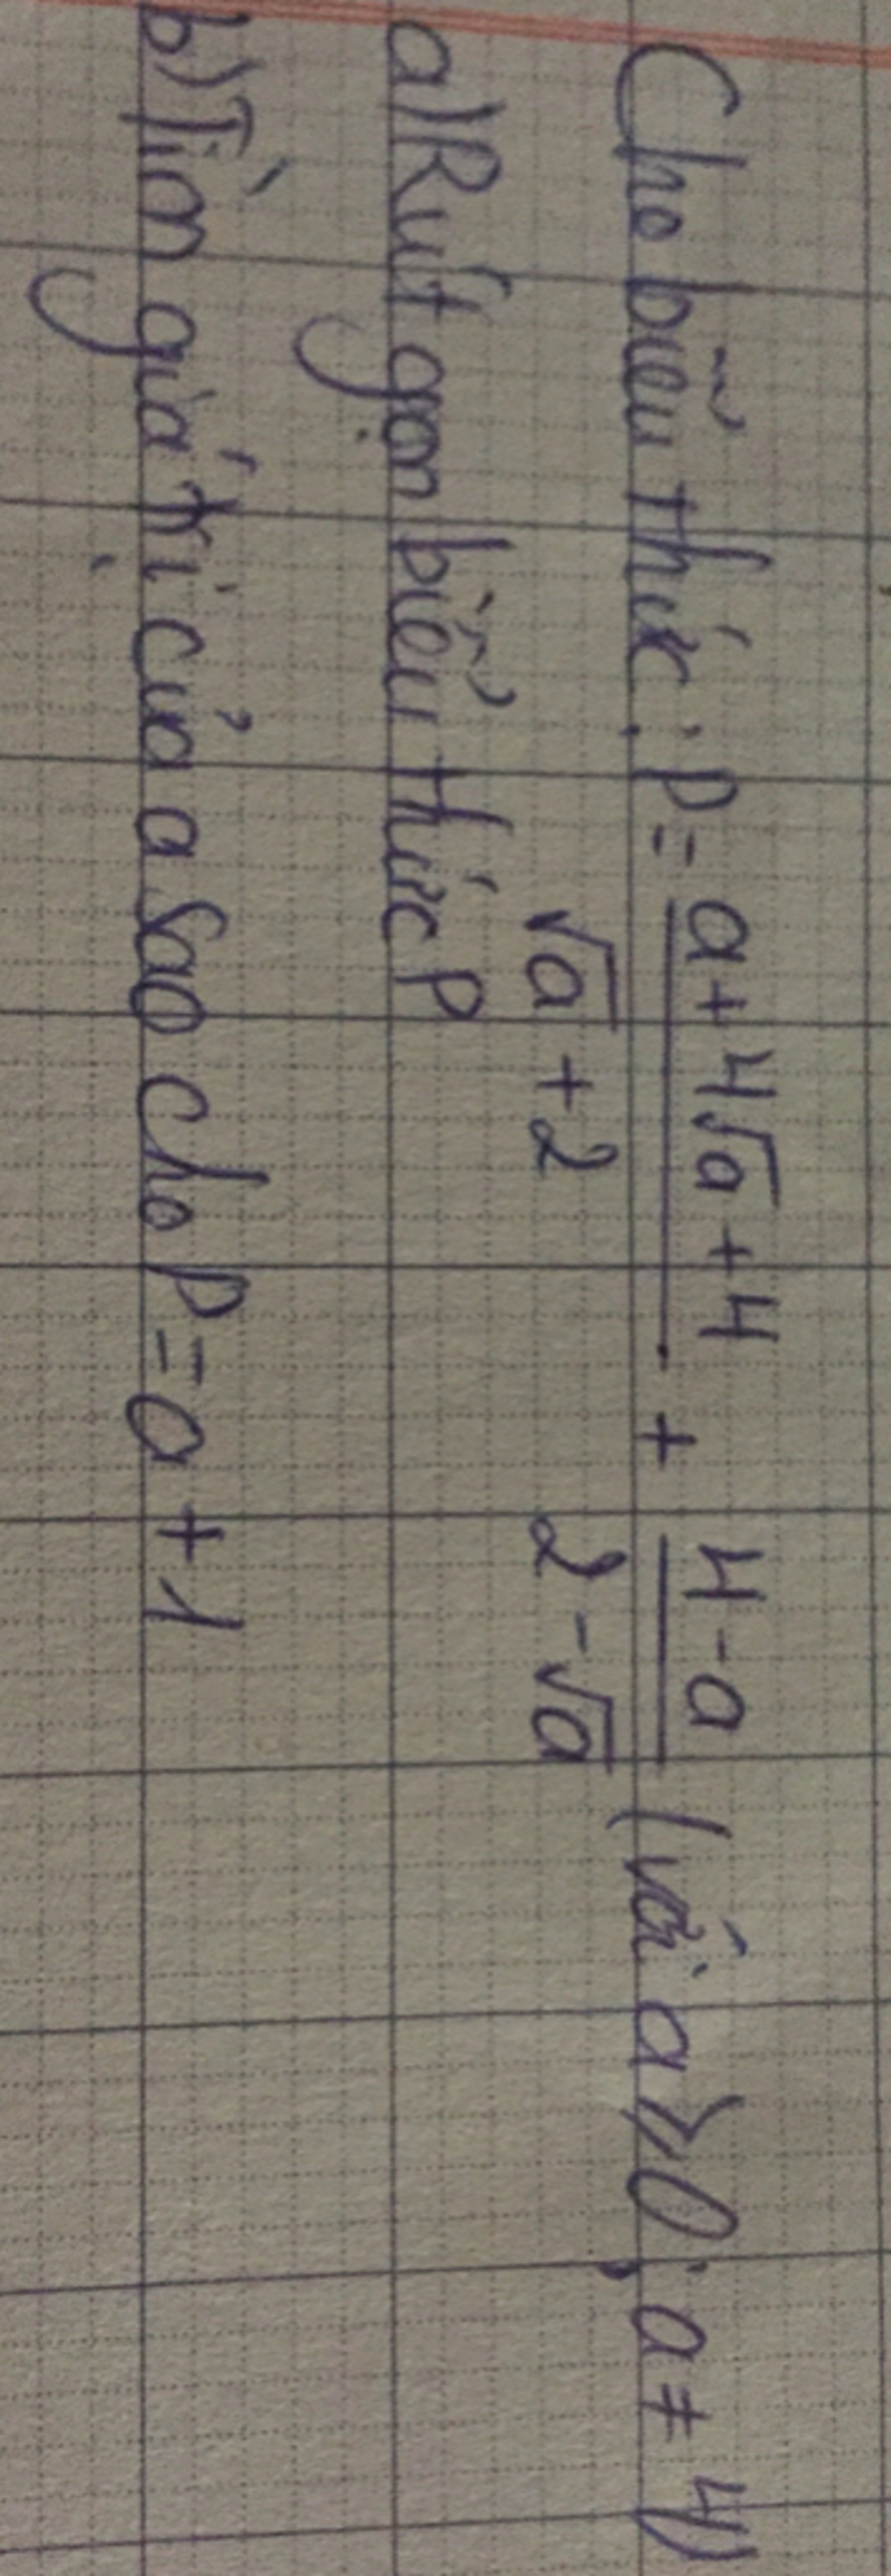 Cho biểu thức: P = \frac{a+4\sqrt{a}+4}{\sqrt{a}+2} + \frac{4-a}{2-\sqrt{a}} (với a ⩾ 0; a ≠ 4)
a) Rút gọn biểu thức P
b) Tìm giá trị của a sao cho P = a + 1